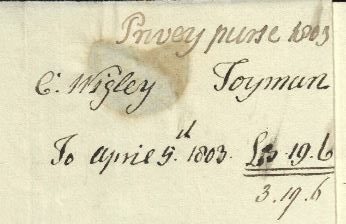 Privey purse 1803
C. Wigley Toyman
To April 5.th 1803. £3 19.6
3.19.6